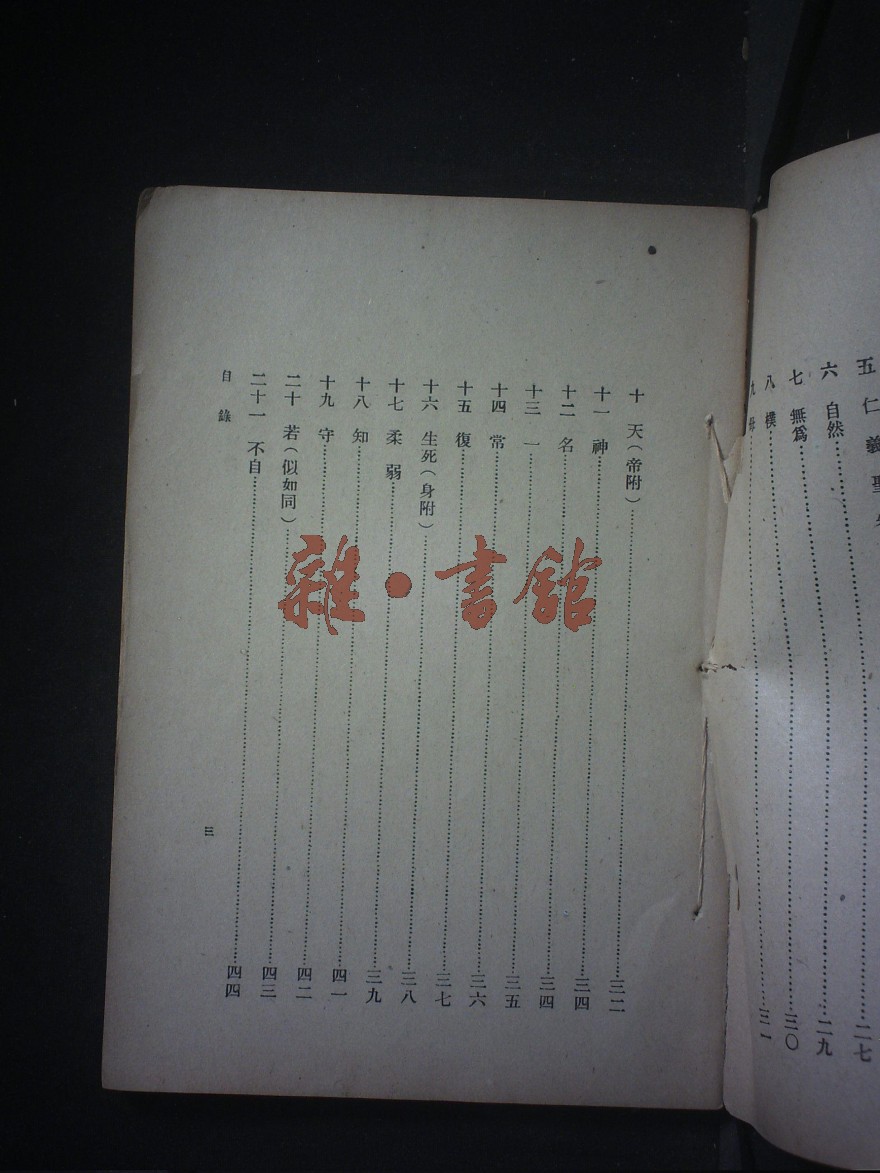 五 仁義聖……二七
六 自然……二九
七 無爲……三〇
八 樸……三一
九 母……
十 天（帝附）……三二
十一 神……三四
十二 名……三四
十三 一……三五
十四 常……三六
十五 復……三七
十六 生死（身附）……三八
十七 柔弱……三九
十八 知……四一
十九 守……四二
二十 若（似如同）……四三
二十一 不自……四四
目錄
三
雜·書館